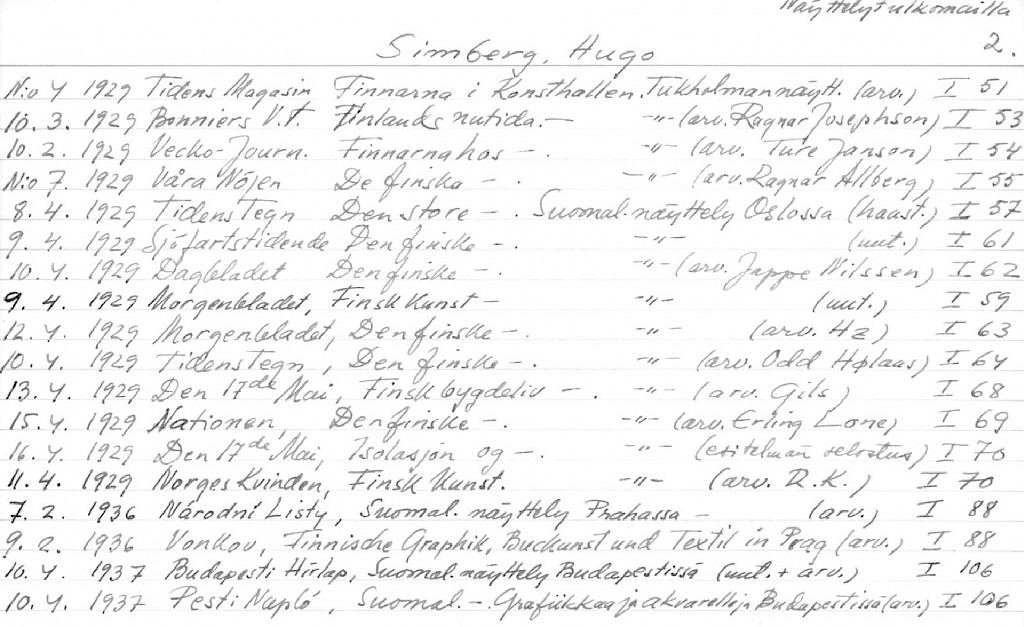 Näyttelyt ulkomailla
2.
Simberg, Hugo
N:o 4 1929 Tidens Magasin Finnarna i Konsthallen. Tukholman näytt. (arv.) I 51
10. 3. 1929 Bonniers V.T. Finlands nutida. — -"- (arv. Ragnar Josephson) I 53
10. 2. 1929 Vecko-Journ. Finnarna hos — . -"- (arv. Ture Janson) I 54
N:o 7. 1929 Våra Nöjen De finska — . -"- (arv. Ragnar Allberg) I 55
8. 4. 1929 Tidens Tegn Den store — . Suomal. näyttely Oslossa (haast.) I 57
9. 4. 1929 Sjöfartstidende Den finske — . -"- (uut.) I 61
10. 4. 1929 Dagbladet Den finske — . -"- (arv. Jappe Nilssen) I 62
9. 4. 1929 Morgenbladet, Finsk Kunst — -"- (uut.) I 59
12. 4. 1929 Morgenbladet, Den finske — . -"- (arv. Hz) I 63
10. 4. 1929 Tidens Tegn, Den finske — . -"- (arv. Odd Hølaas) I 64
13. 4. 1929 Den 17de Mai, Finsk bygdeliv — . -"- (arv. Gils) I 68
15. 4. 1929 Nationen, Den finske — . -"- (arv. Erling Lone) I 69
16. 4. 1929 Den 17de Mai, Isolasjon og — . -"- (esitelmän selostus) I 70
11. 4. 1929 Norges Kvinden, Finsk Kunst. -"- (arv. D.K.) I 70
7. 2. 1936 Národní Listy, Suomal. näyttely Prahassa — (arv.) I 88
9. 2. 1936 Venkov, Finnische Graphik, Buckunst und Textil in Prag (arv.) I 88
10. 4. 1937 Budapesti Hirlap, Suomal. näyttely Budapestissä (uut. + arv.) I 106
10. 4. 1937 Pesti Napló, Suomal. — . Grafiikkaa ja akvarelleja Budapestissä (arv.) I 106